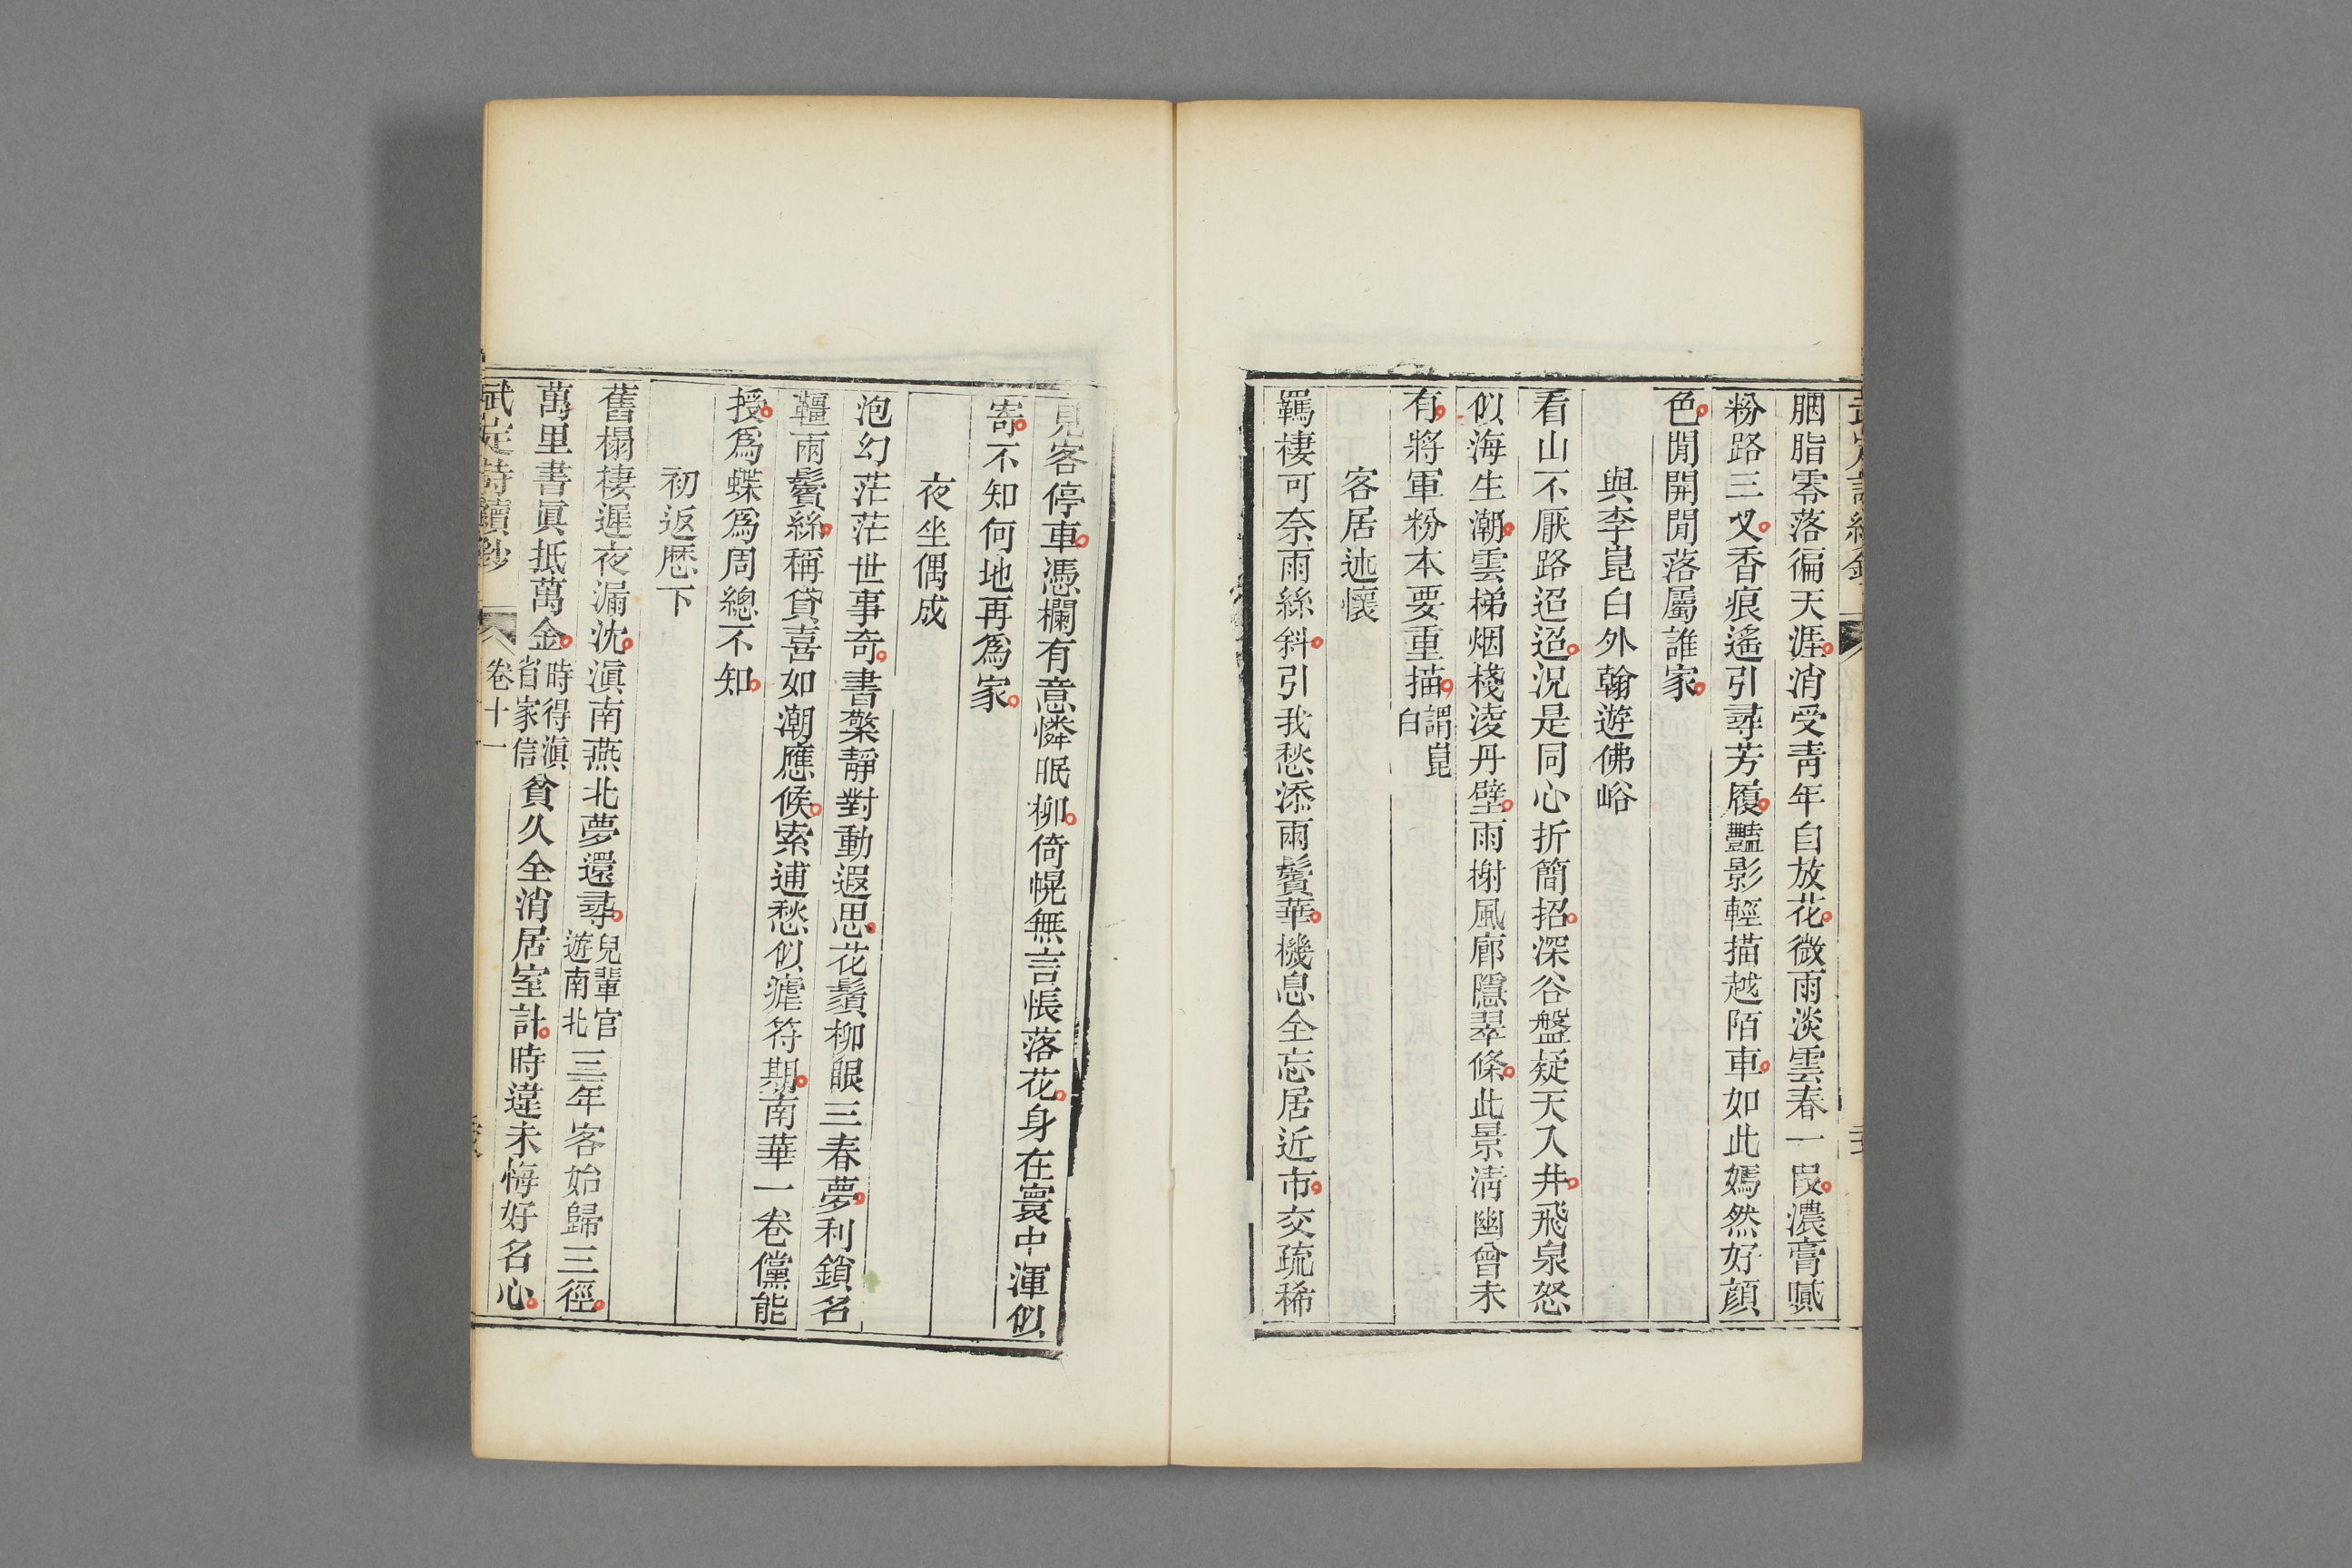 胭脂零落徧天涯消受青年自放花微雨淡雲春一段濃膏膩
粉路三叉香痕遙引尋芳履豔影輕描越陌車如此嫣然好顔
色閒開閒落屬誰家
與李崑白外翰遊佛峪
看山不厭路迢迢況是同心折簡招深谷盤疑天入井飛泉怒
似海生潮雲梯烟棧淩丹壁雨榭風廊隱翠條此景淸幽曾未
有將軍粉本要重描謂崑白
客居述懷
羈棲可奈雨絲斜引我愁添兩鬢華機息全忘居近市交疏稀
見客停車憑欄有意憐眠柳倚幌無言悵落花身在寰中渾似
寄不知何地再爲家
夜坐偶成
泡幻茫茫世事奇書檠靜對動遐思花鬚柳眼三春夢利鎖名
韁兩鬢絲稱貸喜如潮應候索逋愁似瘧符期南華一卷儻能
授爲蝶爲周總不知
初返歷下
舊榻棲遲夜漏沈滇南燕北夢還尋兒輩官遊南北三年客始歸三徑
萬里書眞抵萬金時得滇省家信貧久全消居室計時違未悔好名心
武定詩續鈔
卷十一